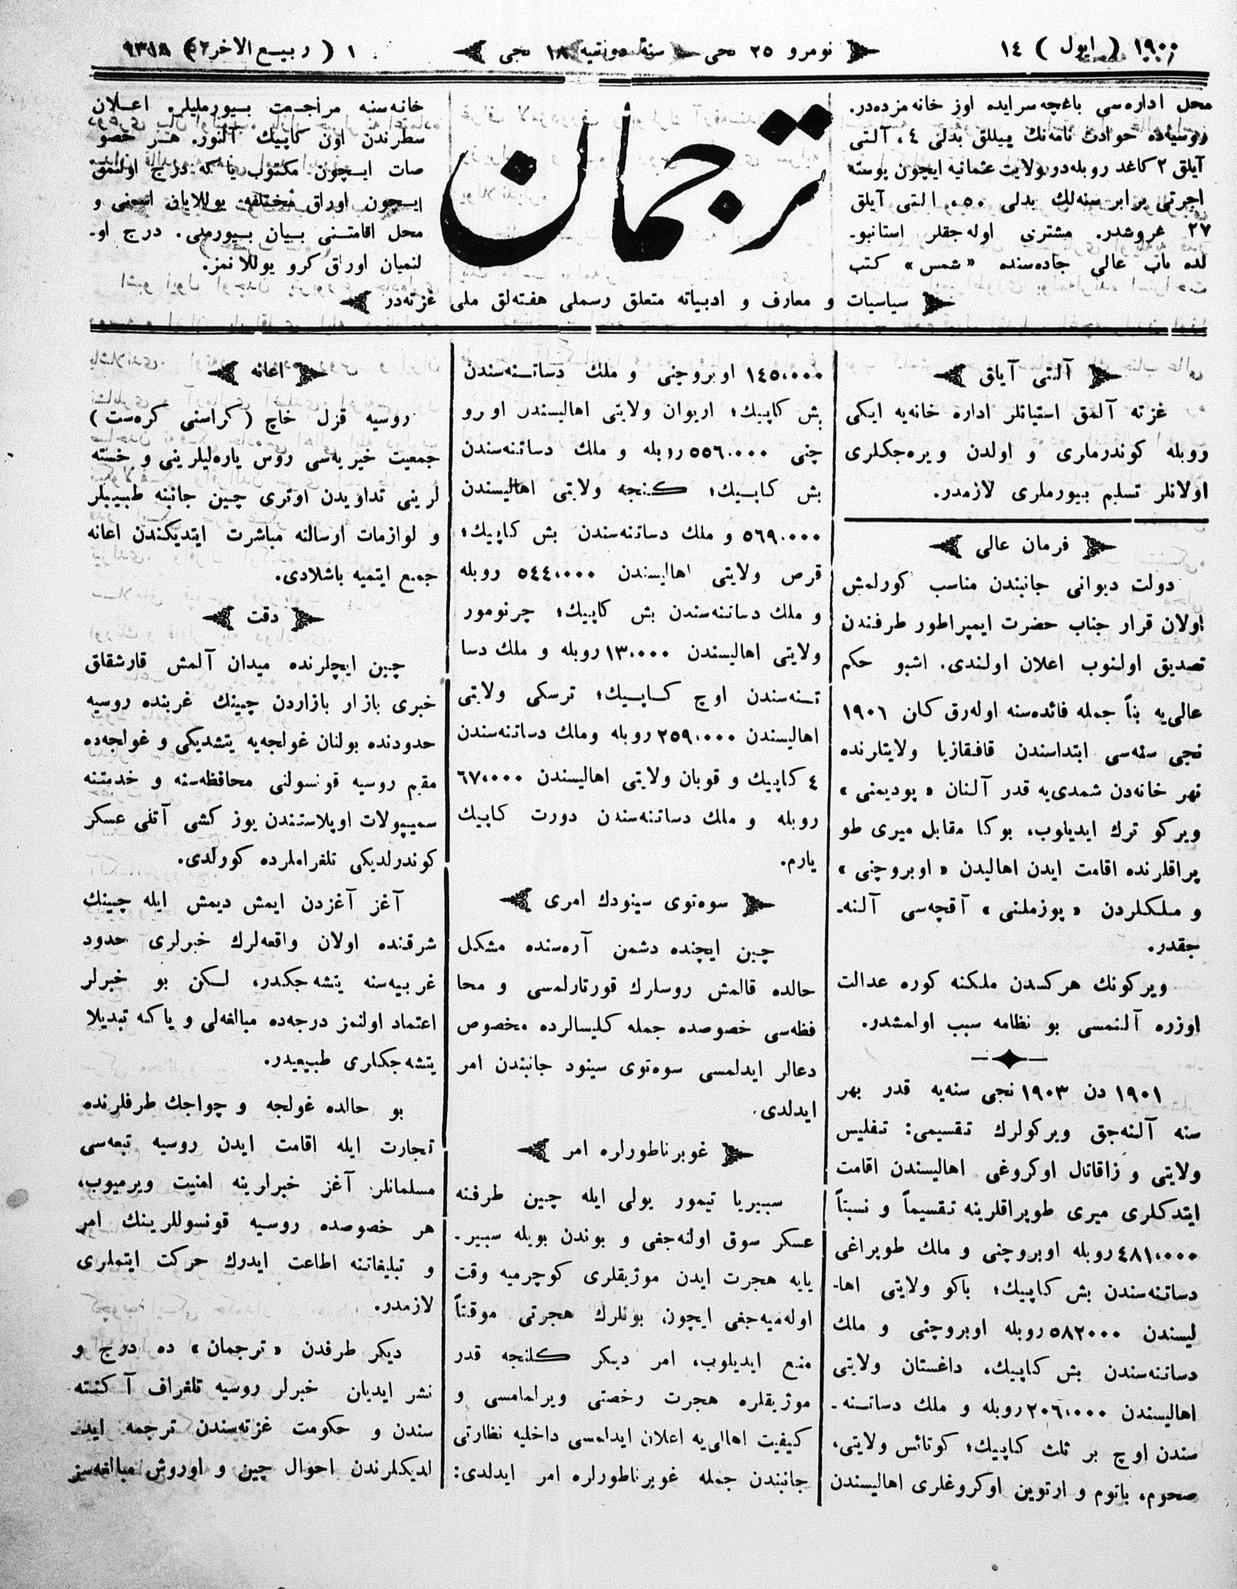 ١٩٠٠ ( ايول ) ١٤
نومرو ٢٥ نجى سنهٔ ١٨ نجى
١ ( ربيع الاخر )
محل اداره‌سى باغچه‌سرايده اوز خانه مزده‌در.
روسياده حوادث نامه‌نك ييللق بدلى ٤، آلتى
آيلق ٢ كاغد روبله‌در. ولايت عثمانيه ايچون پوسته
اجرتى برابر سنه‌لك بدلى ٥٠، التى آيلق
٢٧ غروشدر. مشترى اوله‌جقلر استانبو-
لده باب عالى جاده‌سنده «شمس» كتب
ترجمان
خانه‌سنه مراجعت بيورمليلر. اعلان
سطرندن اون كاپيك آلنور. هر خصو
صات ايچون مكتوب ياكه درج اولنمق
ايچون اوراق مختلفه يوللايان اسمنى و
محل اقامتنى بيان بيورملى. درج او-
لنميان اوراق كرو يوللانمز.
سياسيات و معارف و ادبياته متعلق رسملى هفته‌لق ملى غزته‌در
آلتى آيلق
غزته آلمق استيانلر اداره خانه‌يه ايكى
روبله كوندرمارى و اولدن ويره‌جكلرى
اولانلر تسليم بيورملرى لازمدر.
فرمان عالى
دولت ديوانى جانبندن مناسب كورلمش
اولان قرار جناب حضرت ايمپراطور طرفندن
تصديق اولنوب اعلان اولندى. اشبو حكم
عالى‌يه بناً جمله فائده‌سنه اوله‌رق كان ١٩٠١
نجى سنه‌سى ابتداسندن قافقازيا ولايتلرنده
نهر خانه‌دن شمدى‌يه قدر آلنان «پوديمنى»
ويركو ترك ايديلوب، بوكا مقابل ميرى طو
پراقلرنده اقامت ايدن اهاليدن «اوبروچنى»
و ملكلردن «پوزملنى» آقچه‌سى آلنه-
جقدر.
ويركونك هركسدن ملكنه كوره عدالت
اوزره آلنمسى بو نظامه سبب اولمشدر.
١٩٠١ دن ١٩٠٣ نجى سنه‌يه قدر بهر
سنه آلنه‌جق ويركولرك تقسيمى: تفليس
ولايتى و زاقاتال اوكروغى اهاليسندن اقامت
ايتدكلرى ميرى طوپراقلرينه تقسيماً و نسبتاً
٤٨١،٠٠٠ روبله اوبروچنى و ملك طوپراغى
دساتنه‌سندن بش كاپيك؛ باكو ولايتى اها-
ليسندن ٥٨٢٠٠٠ روبله اوبروچنى و ملك
دساتنه‌سندن بش كاپيك، داغستان ولايتى
اهاليسندن ٢٠٦،٠٠٠ روبله و ملك دساتنه-
سندن اوچ بر ثلث كاپيك؛ كوتائس ولايتى،
صحوم، باتوم و ارتوين اوكروغلرى اهاليسندن
١٤٥،٠٠٠ اوبروچنى و ملك دساتنه‌سندن
بش كاپيك؛ اريوان ولايتى اهاليسندن اوبرو
چنى ٥٥٦،٠٠٠ روبله و ملك دساتنه‌سندن
بش كاپيك؛ كنجه ولايتى اهاليسندن
٥٦٩،٠٠٠ و ملك دساتنه‌سندن بش كاپيك؛
قرص ولايتى اهاليسندن ٥٤٤،٠٠٠ روبله
و ملك دساتنه‌سندن بش كاپيك؛ چرنومور
ولايتى اهاليسندن ١٣،٠٠٠ روبله و ملك دسا
تنه‌سندن اوچ كاپيك؛ ترسكى ولايتى
اهاليسندن ٢٥٩،٠٠٠ روبله وملك دساتنه‌سندن
٤ كاپيك و قوبان ولايتى اهاليسندن ٦٧،٠٠٠
روبله و ملك دساتنه‌سندن دورت كاپيك
يارم.
سوه‌توى سينودك امرى
چين ايچنده دشمن آره‌سنده مشكل
حالده قالمش روسلرك قورتارلمسى و محا
فظه‌سى خصوصده جمله كليسالرده مخصوص
دعالر ايدلمسى سوه‌توى سينود جانبندن امر
ايدلدى.
غوبرناطورلره امر
سيبيريا تيمور يولى ايله چين طرفنه
عسكر سوق اولنه‌جغى و بوندن بويله سيبير-
يايه هجرت ايدن موژيقلرى كوچرميه وقت
اوله‌ميه‌جغى ايچون، بونلرك هجرتى موقتاً
منع ايديلوب، امر ديكر كلنجه قدر
موژيقلره هجرت رخصتى ويرلمامسى و
كيفيت اهالى‌يه اعلان ايدلمسى داخليه نظارتى
جانبندن جمله غوبرناطورلره امر ايدلدى:
اعانه
روسيه قزل خاچ (كراسنى كره‌ست)
جمعيت خيريه‌سى روس ياره‌ليلرينى و خسته
لرينى تداويدن اوترى چين جانبه طبيبلر
و لوازمات ارسالنه مباشرت ايتديكندن اعانه
جمع ايتميه باشلادى.
دقت
چين ايچلرنده ميدان آلمش قارشقلق
خبرى بازار بازاردن چينك غربنده روسيه
حدودنده بولنان غولجه‌يه يتشديكى و غولجه‌ده
مقيم روسيه قونسولنى محافظه‌سنه و خدمتنه
سميپولات اوبلاستندن يوز كشى آتلى عسكر
كوندرلديكى تلغرافلرده كورلدى.
آغز آغزدن ايمش ديمش ايله چينك
شرقنده اولان واقعه‌لرك خبرلرى حدود
غربيه‌سنه يتشه‌جكدر، لكن بو خبرلر
اعتماد اولنمز درجه‌ده مبالغه‌لى و ياكه تبديلا
يتشه‌جكلرى طبيعيدر.
بو حالده غولجه و چواجك طرفلرنده
تجارت ايله اقامت ايدن روسيه تبعه‌سى
مسلمانلر آغز خبرلرينه امنيت ويرميوب،
هر خصوصده روسيه قونسوللرينك امر
و تبليغاتنه اطاعت ايدرك حركت ايتملرى
لازمدر.
ديكر طرفدن «ترجمان» ده درج و
نشر ايديان خبرلر روسيه تلغراف آكنته
سندن و حكومت غزته‌سندن ترجمه ايد-
لديكلرندن احوال چين و اوروش مبالغه‌سز